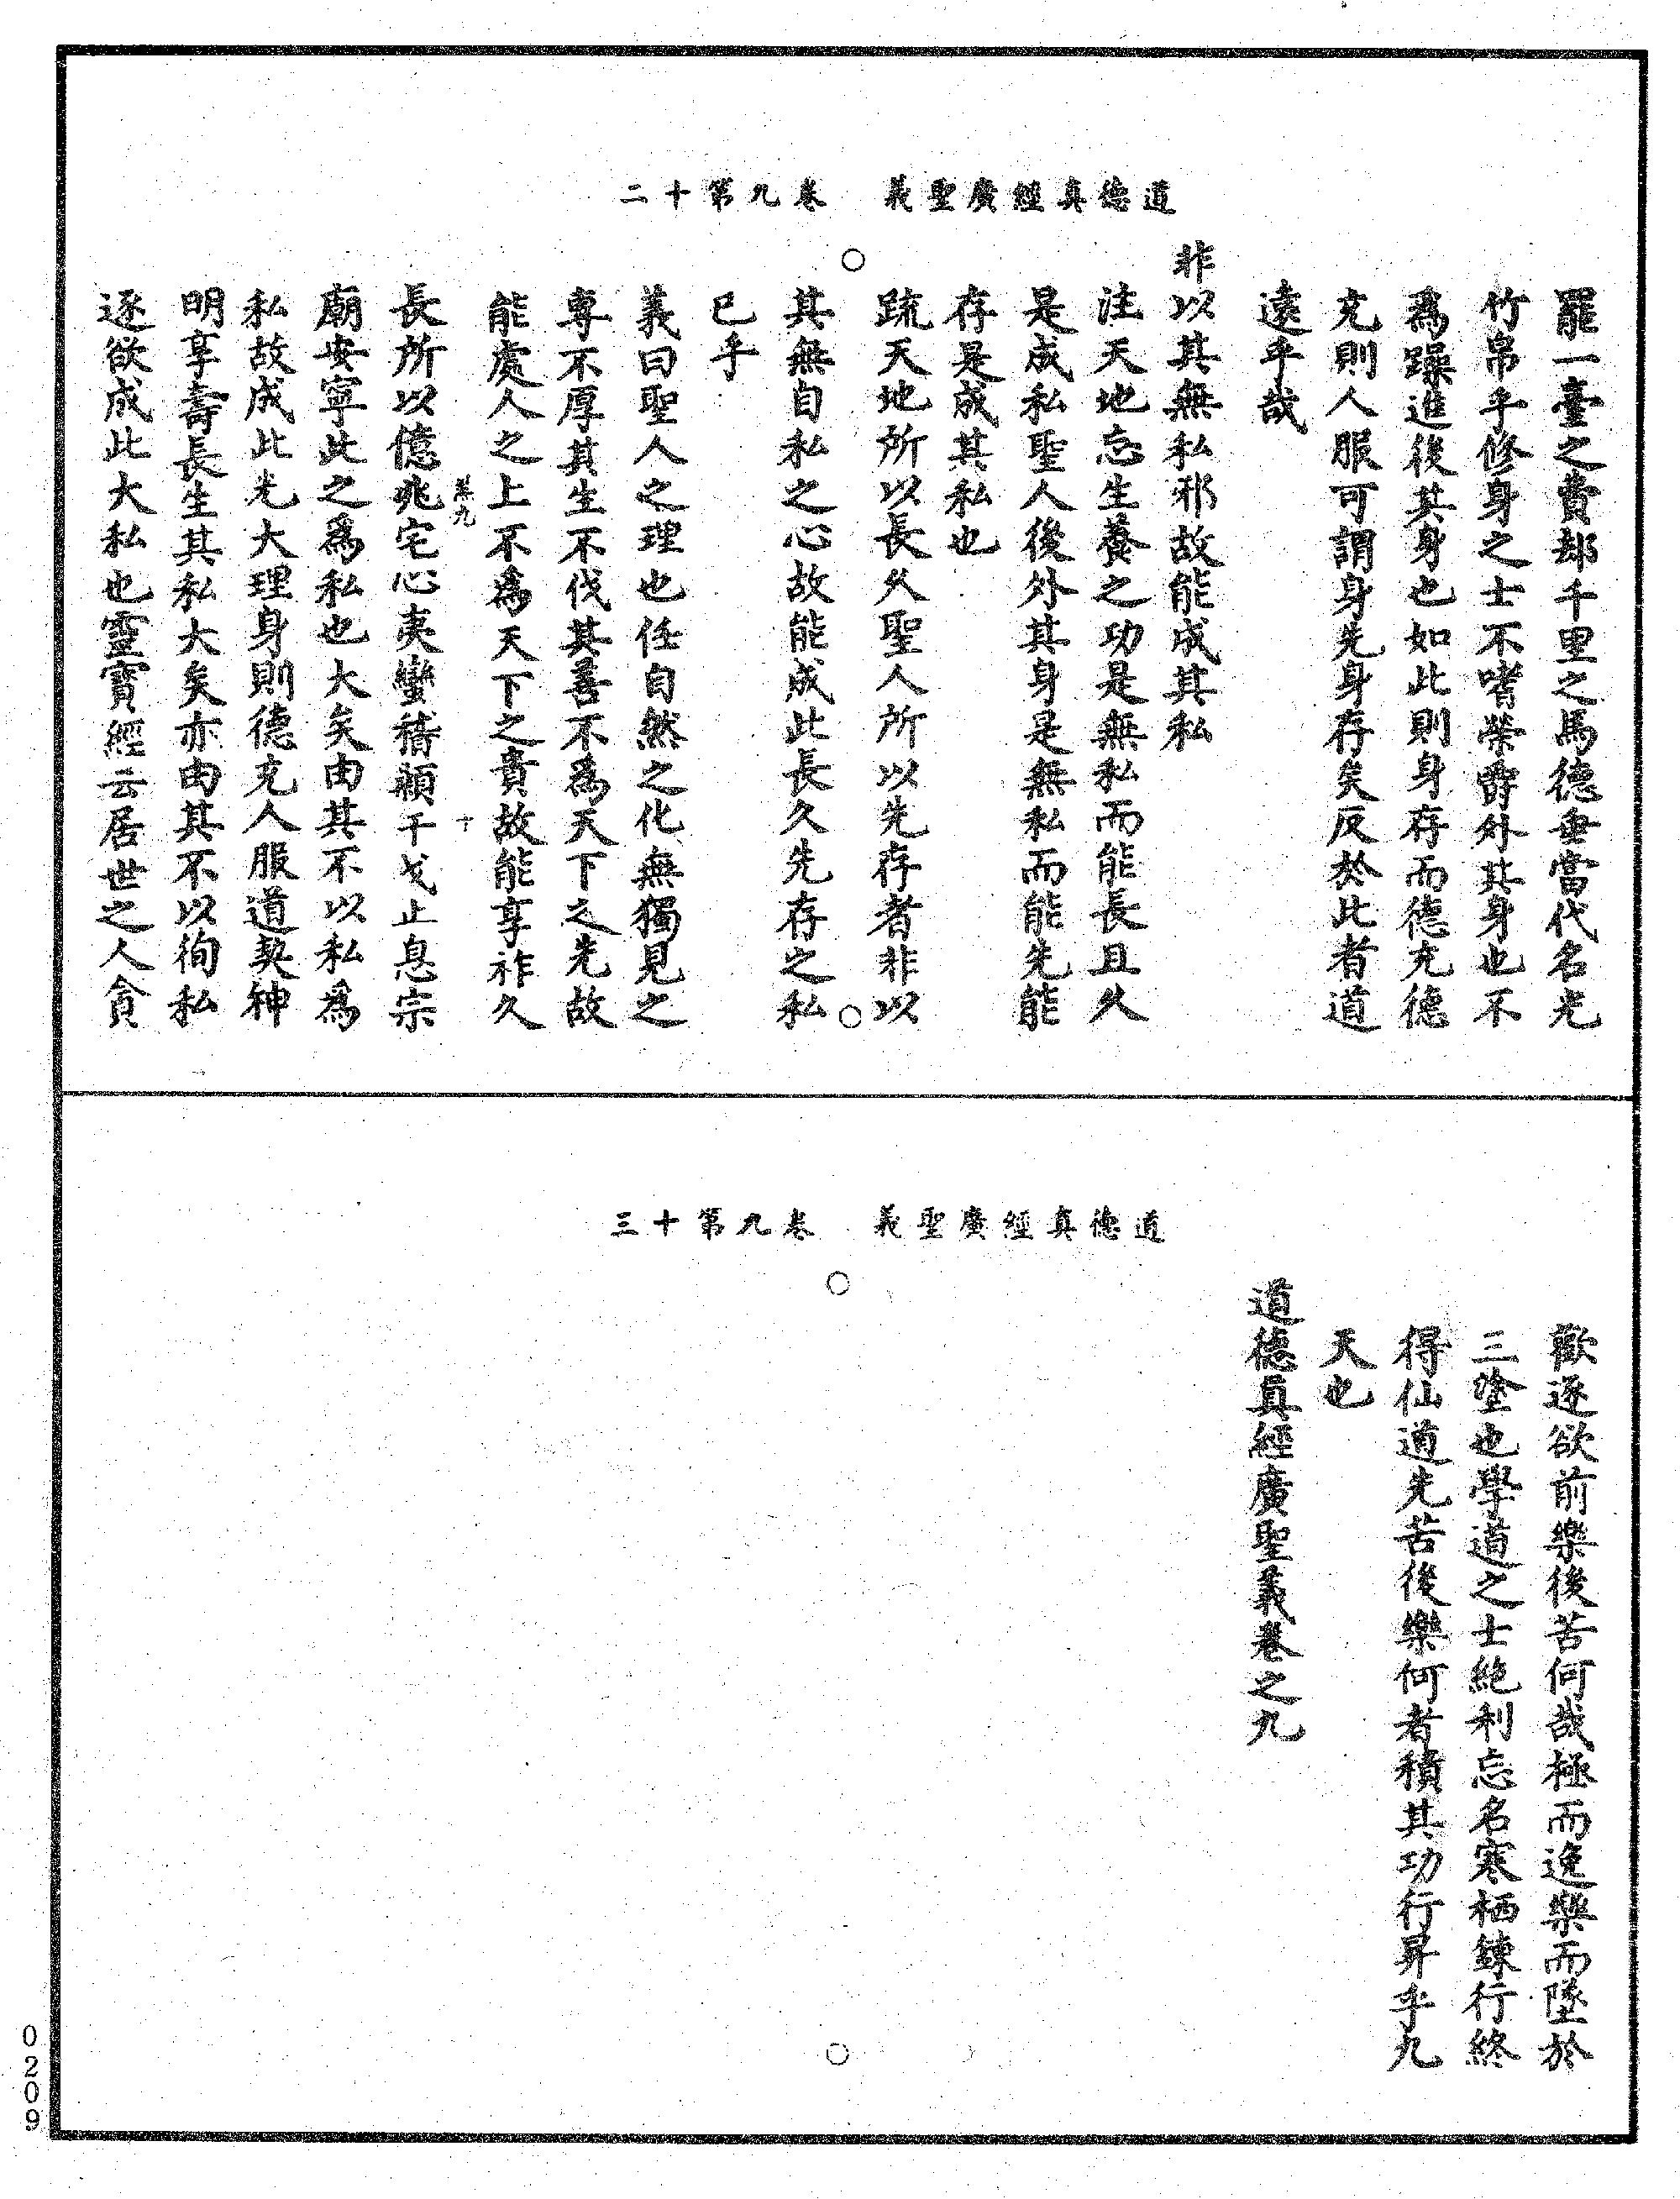 道德真經廣聖義　卷九第十二
罷一臺之費却千里之馬德垂當代名光
竹帛乎修身之士不嗜榮爵外其身也不
爲躁進後其身也如此則身存而德充德
充則人服可謂身先身存矣反於此者道
遠乎哉
非以其無私邪故能成其私
注天地忘生養之功是無私而能長且久
是成私聖人後外其身是無私而能先能
存是成其私也
疏天地所以長久聖人所以先存者非以
其無自私之心故能成此長久先存之私
已乎
義曰聖人之理也任自然之化無獨見之
專不厚其生不伐其善不爲天下之先故
能處人之上不爲天下之貴故能享祚久
卷九　十
長所以億兆宅心夷蠻稽顙干戈止息宗
廟安寧此之爲私也大矣由其不以私爲
私故成此光大理身則德充人服道契神
明享壽長生其私大矣亦由其不以徇私
逐欲成此大私也靈寶經云居世之人貪
道德真經廣聖義　卷九第十三
歡逐欲前樂後苦何哉極而逸樂而墜於
三塗也學道之士絶利忘名寒栖鍊行終
得仙道先苦後樂何者積其功行昇乎九
天也
道德真經廣聖義卷之九
0209